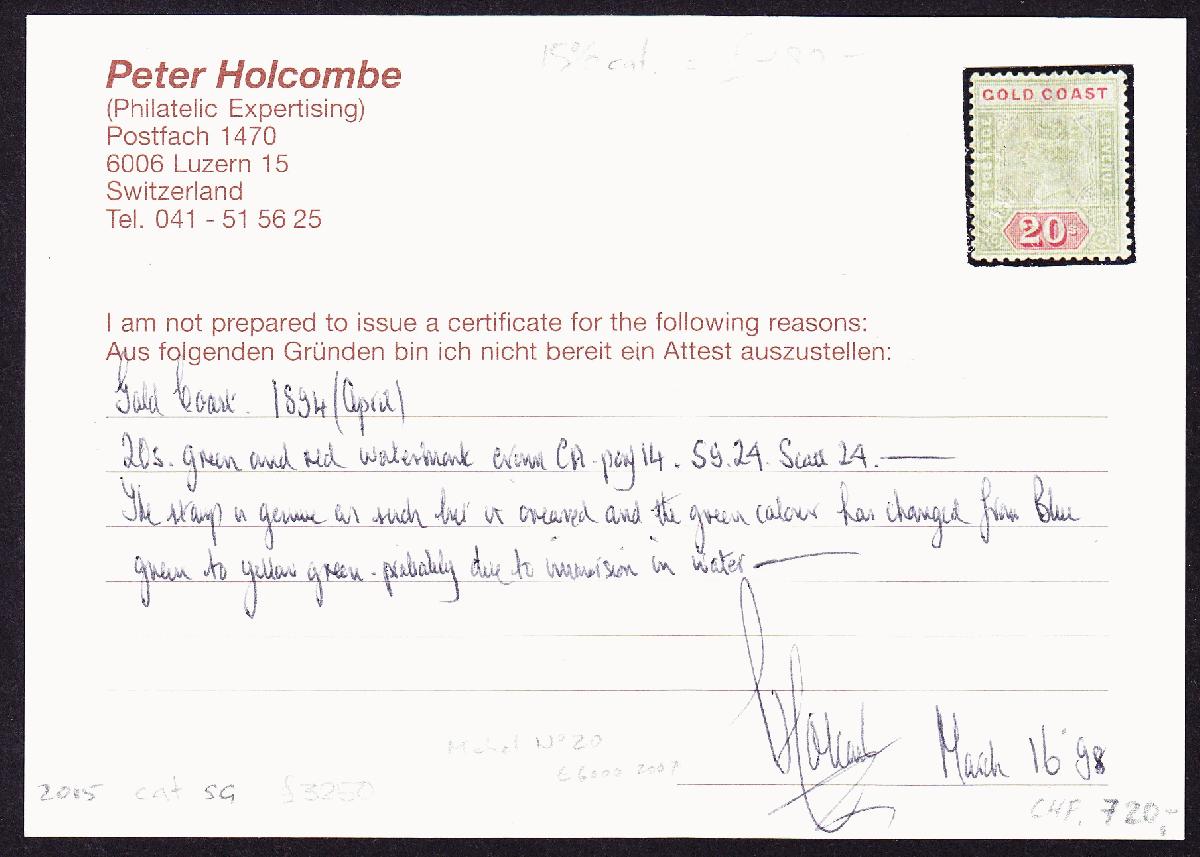 15% cat. =
Peter Holcombe
(Philatelic Expertising)
Postfach 1470
6006 Luzern 15
Switzerland
Tel. 041 - 51 56 25
GOLD COAST
POSTAGE
REVENUE
20s
I am not prepared to issue a certificate for the following reasons:
Aus folgenden Gründen bin ich nicht bereit ein Attest auszustellen:
Gold Coast. 1894 (April)
20s. green and red watermark crown CA perf 14. SG.24. Scott 24.
The stamp is genuine as such but is creased and the green colour has changed from Blue
green to yellow green - probably due to immersion in water
Holcombe March 16 '98
Michel N° 20
£6000 2007
2005 cat SG £3250
CHF. 720,-